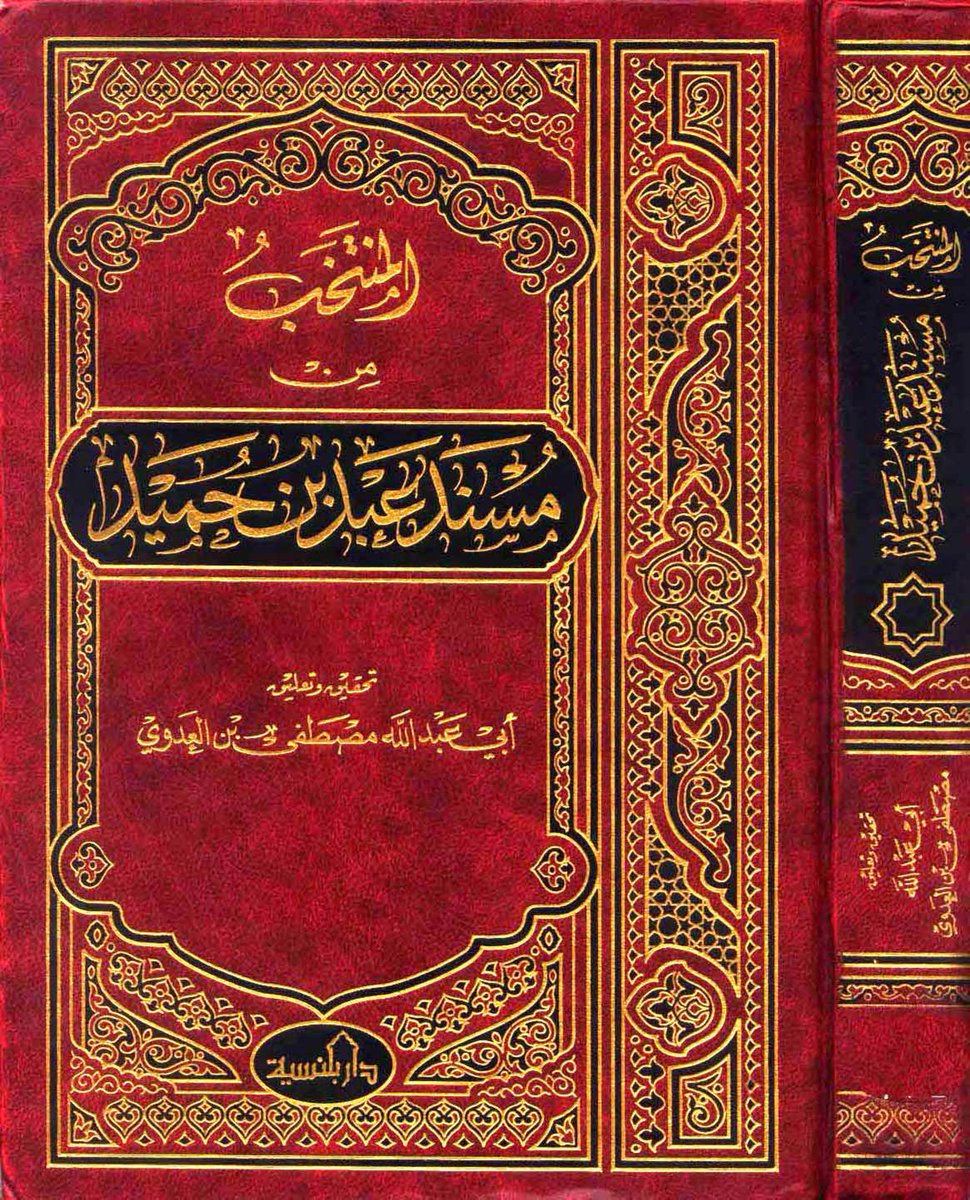 المنتخبُ
من
مُسْنَد عَبْد بن حُمَيْد
تحقيق وتعليق
أبي عَبْد الله مصْطَفى بن العَدوي
دار بلنسية
المنتخبُ
من
مُسْنَد عَبْد بن حُمَيْد
تحقيق وتعليق
أبي عَبْد الله
مصْطَفى بن العَدوي